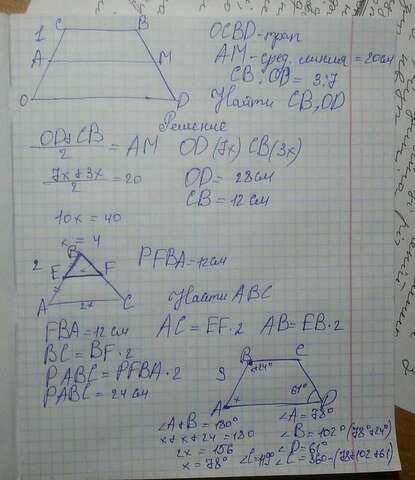 1
C B
A M
O D
OCBD-трап
AM-сред. линия = 20см
CB:OD = 3:7
Найти CB, OD
Решение
OD+CB/2 = AM OD (7x) CB (3x)
7x+3x/2 = 20 OD = 28см
CB = 12 см
10x = 40
x = 4
2
B
E F
A C
2x
PFBA = 12см
Найти ABC
FBA = 12 см AC = EF·2 AB = EB·2
BC = BF·2
PABC = PFBA·2
PABC = 24см
3
B C
x+24°
A x 61° D
∠A+B = 180° ∠A = 78°
x+x+24 = 180 ∠B = 102° (78°+24°)
2x = 156 ∠D = 61°
x = 78° ∠C = 119° ∠C = 360-(78+102+61)